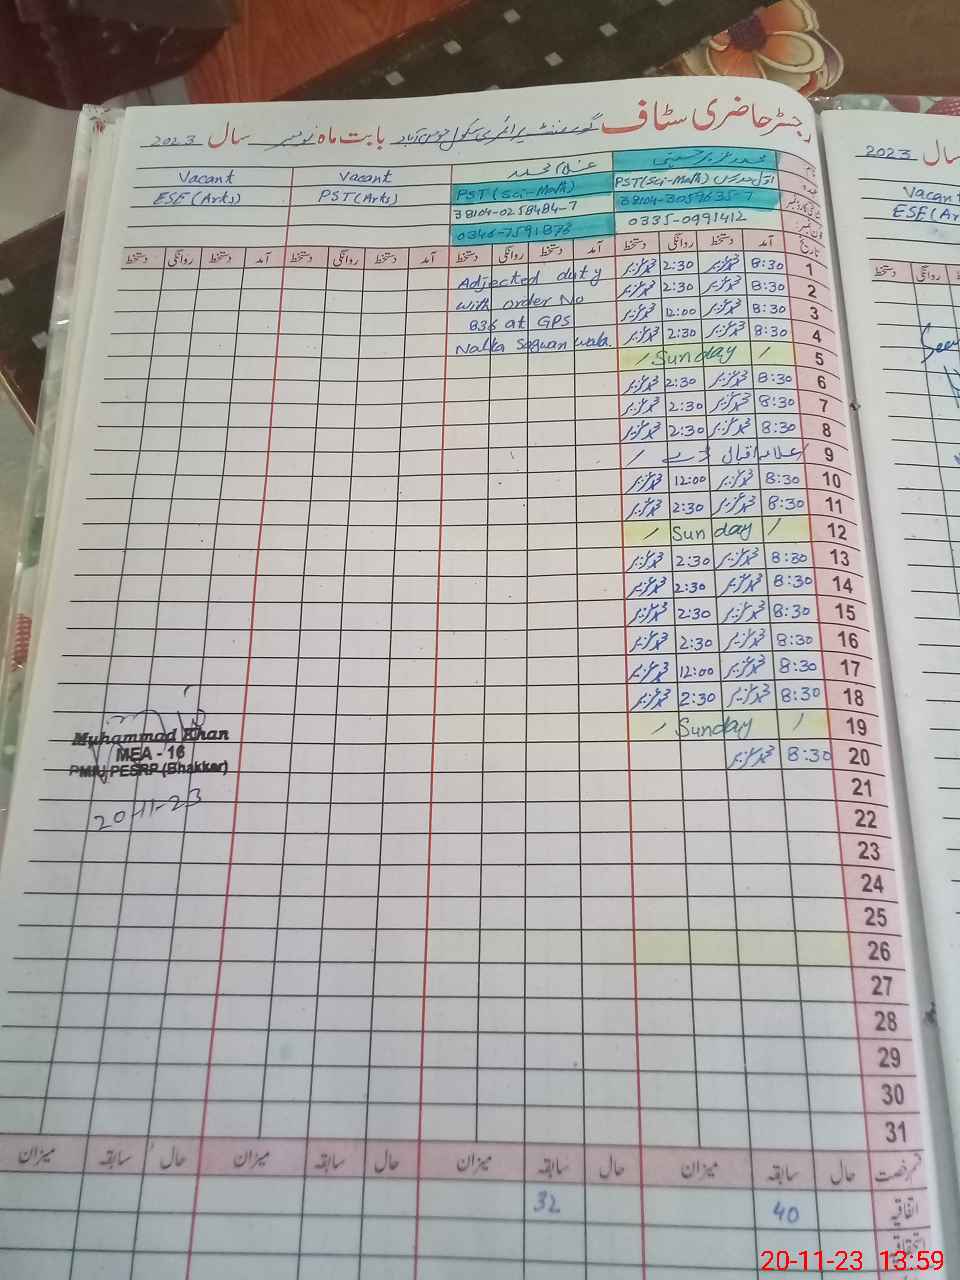 رجسٹر حاضری سٹاف گورنمنٹ پرائمری سکول بابت ماہ نومبر سال 2023
محمد عزیر حسینی غلام محمد Vacant Vacant
PST (Sci-Math) PST (Sci-Math) PST (Arts) ESE (Arts)
38104-3059635-7 38104-0258484-7
0335-0991412 0346-7591876
تاریخ آمد دستخط روانگی دستخط آمد دستخط روانگی دستخط آمد دستخط روانگی دستخط آمد دستخط روانگی دستخط
1 8:30 2:30 Adjected duty
2 8:30 2:30 with order No
3 8:30 12:00 836 at GPS
4 8:30 2:30 Nalka Sagwan wala
5 / Sunday /
6 8:30 2:30
7 8:30 2:30
8 8:30 2:30
9 / علامہ اقبال ڈے /
10 8:30 12:00
11 8:30 2:30
12 / Sunday /
13 8:30 2:30
14 8:30 2:30
15 8:30 2:30
16 8:30 2:30
17 8:30 12:00
18 8:30 2:30
19 / Sunday /
20 8:30
21
22
23
24
25
26
27
28
29
30
31
Muhammad Khan
MEA - 16
PMIU PESRP (Bhakkar)
20-11-23
قسم رخصت حال سابقہ میزان حال سابقہ میزان حال سابقہ میزان حال سابقہ میزان
اتفاقیہ 40 32
استحقاقی
2023 سال
Vacant
ESE (Ar
دستخط روانگی
20-11-23 13:59